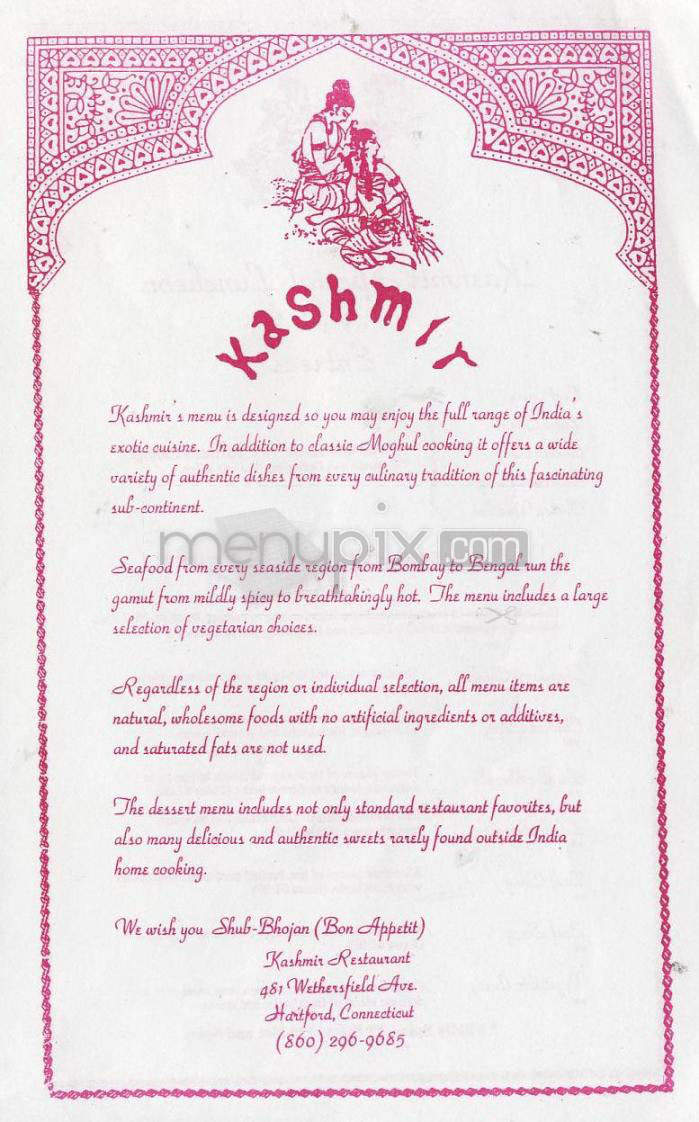 Kashmir
Kashmir's menu is designed so you may enjoy the full range of India's
exotic cuisine. In addition to classic Moghul cooking it offers a wide
variety of authentic dishes from every culinary tradition of this fascinating
sub-continent.
menupix.com
Seafood from every seaside region from Bombay to Bengal run the
gamut from mildly spicy to breathtakingly hot. The menu includes a large
selection of vegetarian choices.
Regardless of the region or individual selection, all menu items are
natural, wholesome foods with no artificial ingredients or additives,
and saturated fats are not used.
The dessert menu includes not only standard restaurant favorites, but
also many delicious and authentic sweets rarely found outside India
home cooking.
We wish you Shub-Bhojan (Bon Appetit)
Kashmir Restaurant
481 Wethersfield Ave.
Hartford, Connecticut
(860) 296-9685